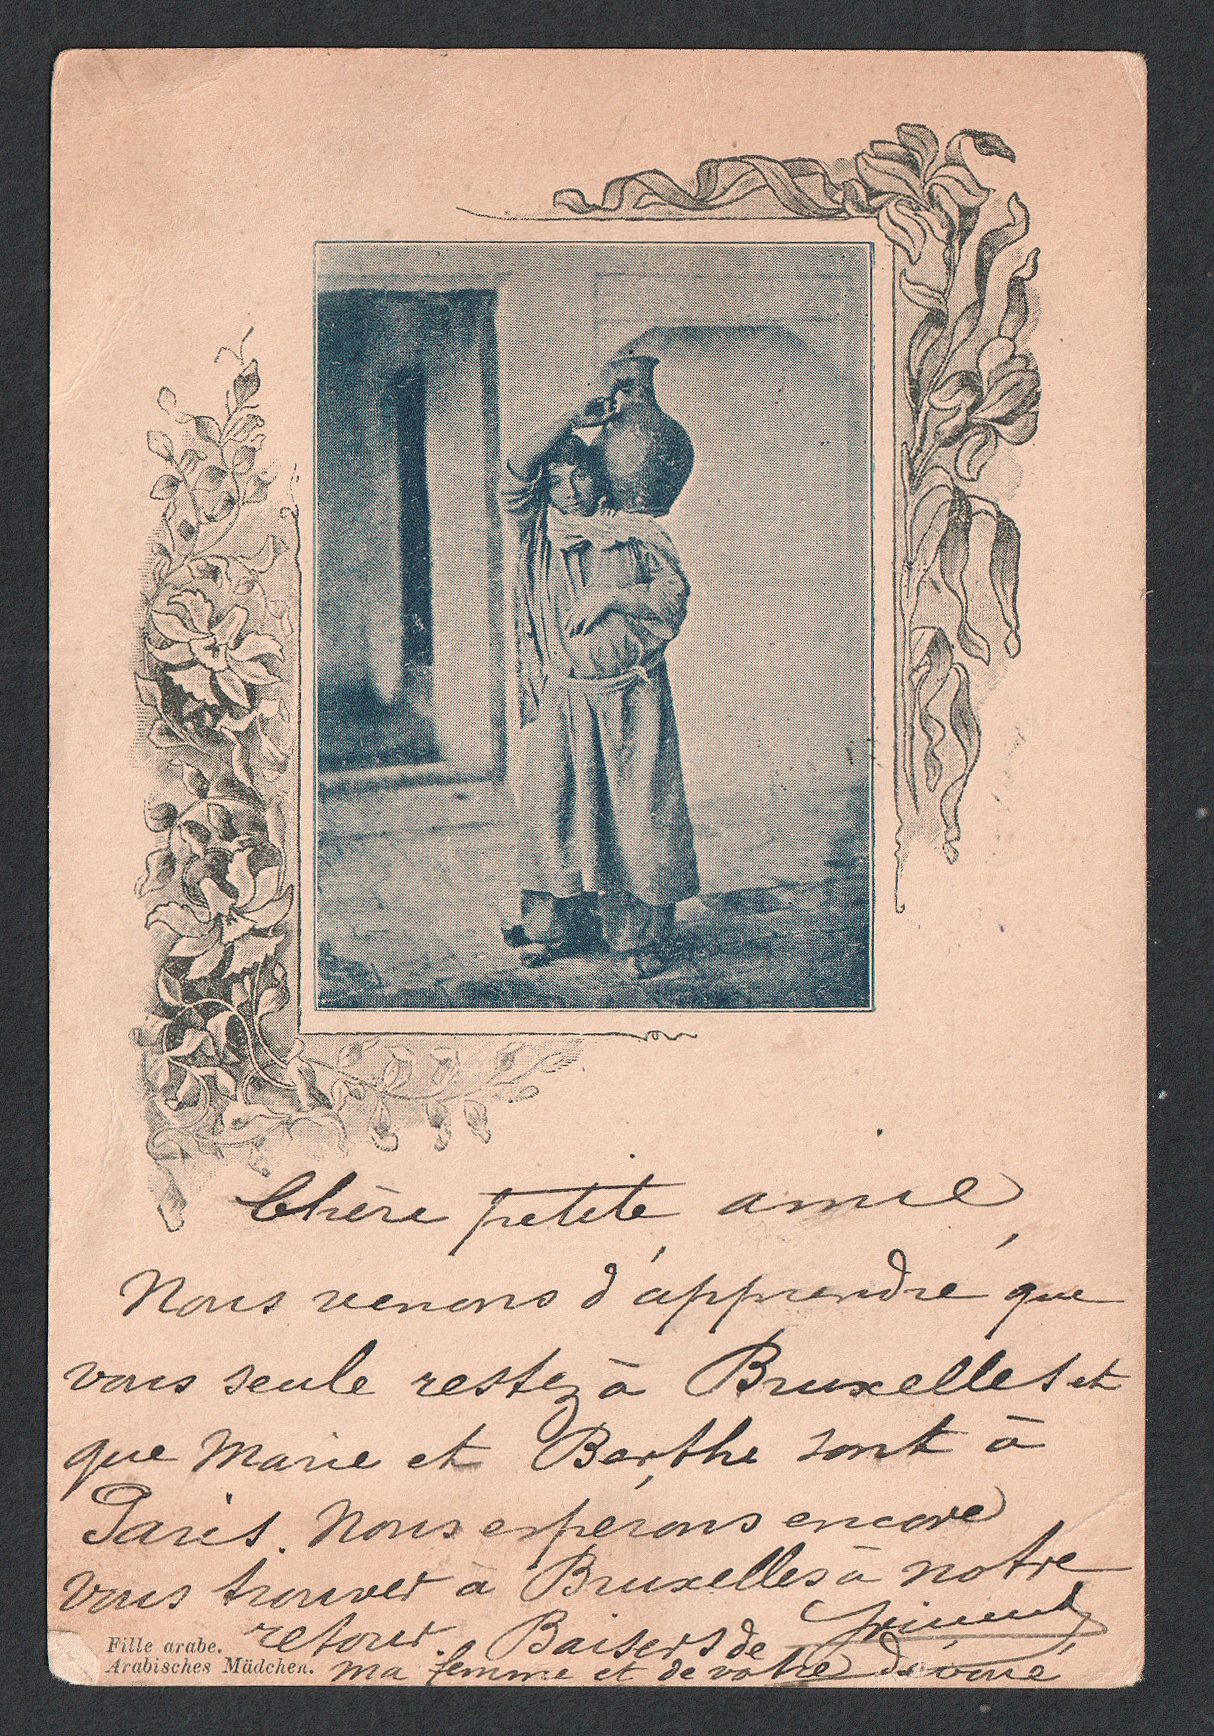 Chère petite amie,
Nous venons d'apprendre que
vous seule restez à Bruxelles et
que Marie et Berthe sont à
Paris. Nous espérons encore
vous trouver à Bruxelles à notre
retour. Baisers de
ma femme et de votre dévoué
Fille arabe.
Arabisches Mädchen.